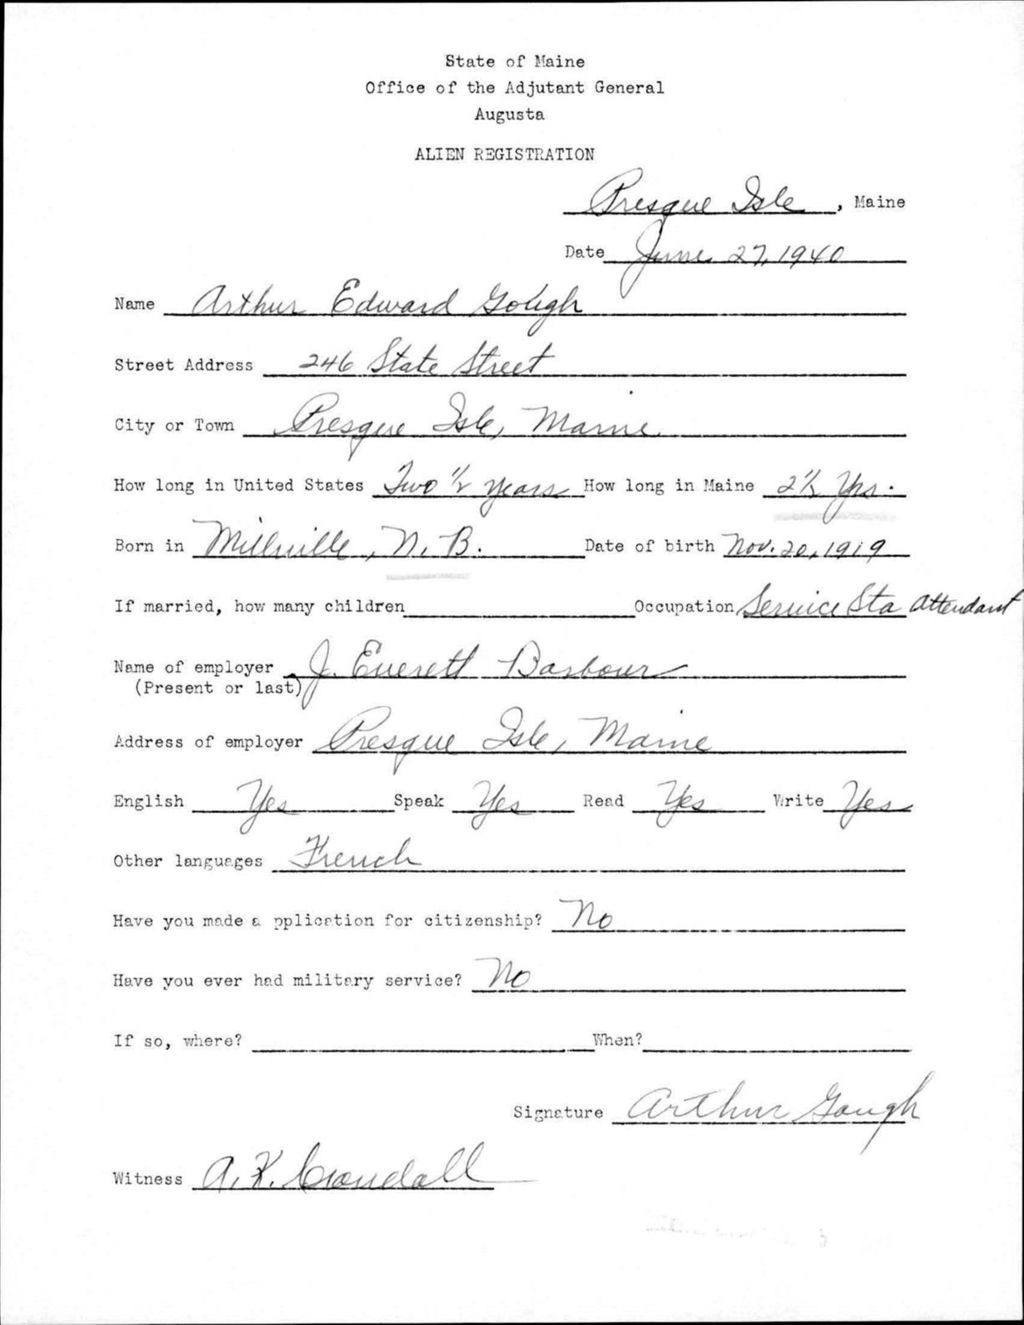 State of Maine
Office of the Adjutant General
Augusta
ALIEN REGISTRATION
Presque Isle, Maine
Date June 27, 1940
Name Arthur Edward Gough
Street Address 246 State Street
City or Town Presque Isle, Maine
How long in United States Two 1/2 years How long in Maine 2 1/2 Yrs.
Born in Millville, N. B. Date of birth Nov. 20, 1919
If married, how many children Occupation Service Sta Attendant
Name of employer J. Everett Barbour
(Present or last)
Address of employer Presque Isle, Maine
English Yes Speak Yes Read Yes Write Yes
Other languages French
Have you made a pplication for citizenship? No
Have you ever had military service? No
If so, where? When?
Signature Arthur Gough
Witness A. K. Crandall